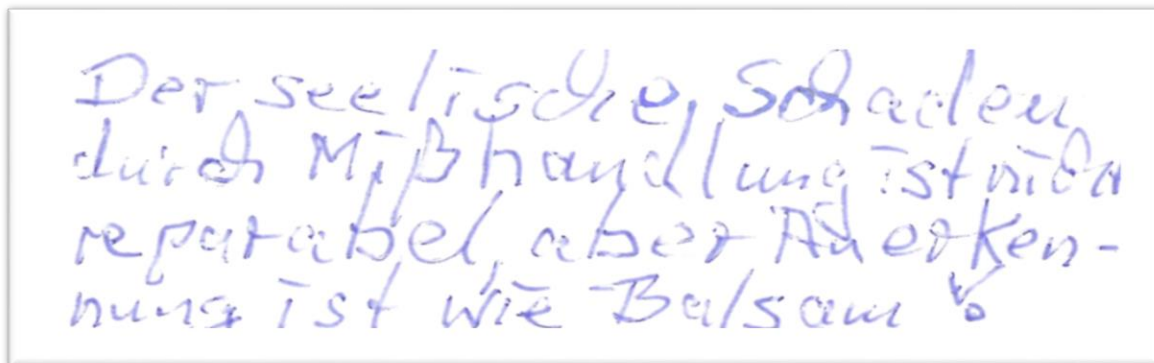 Der seelische Schaden
durch Mißhandlung ist nicht
reparabel, aber Anerken-
nung ist wie Balsam!